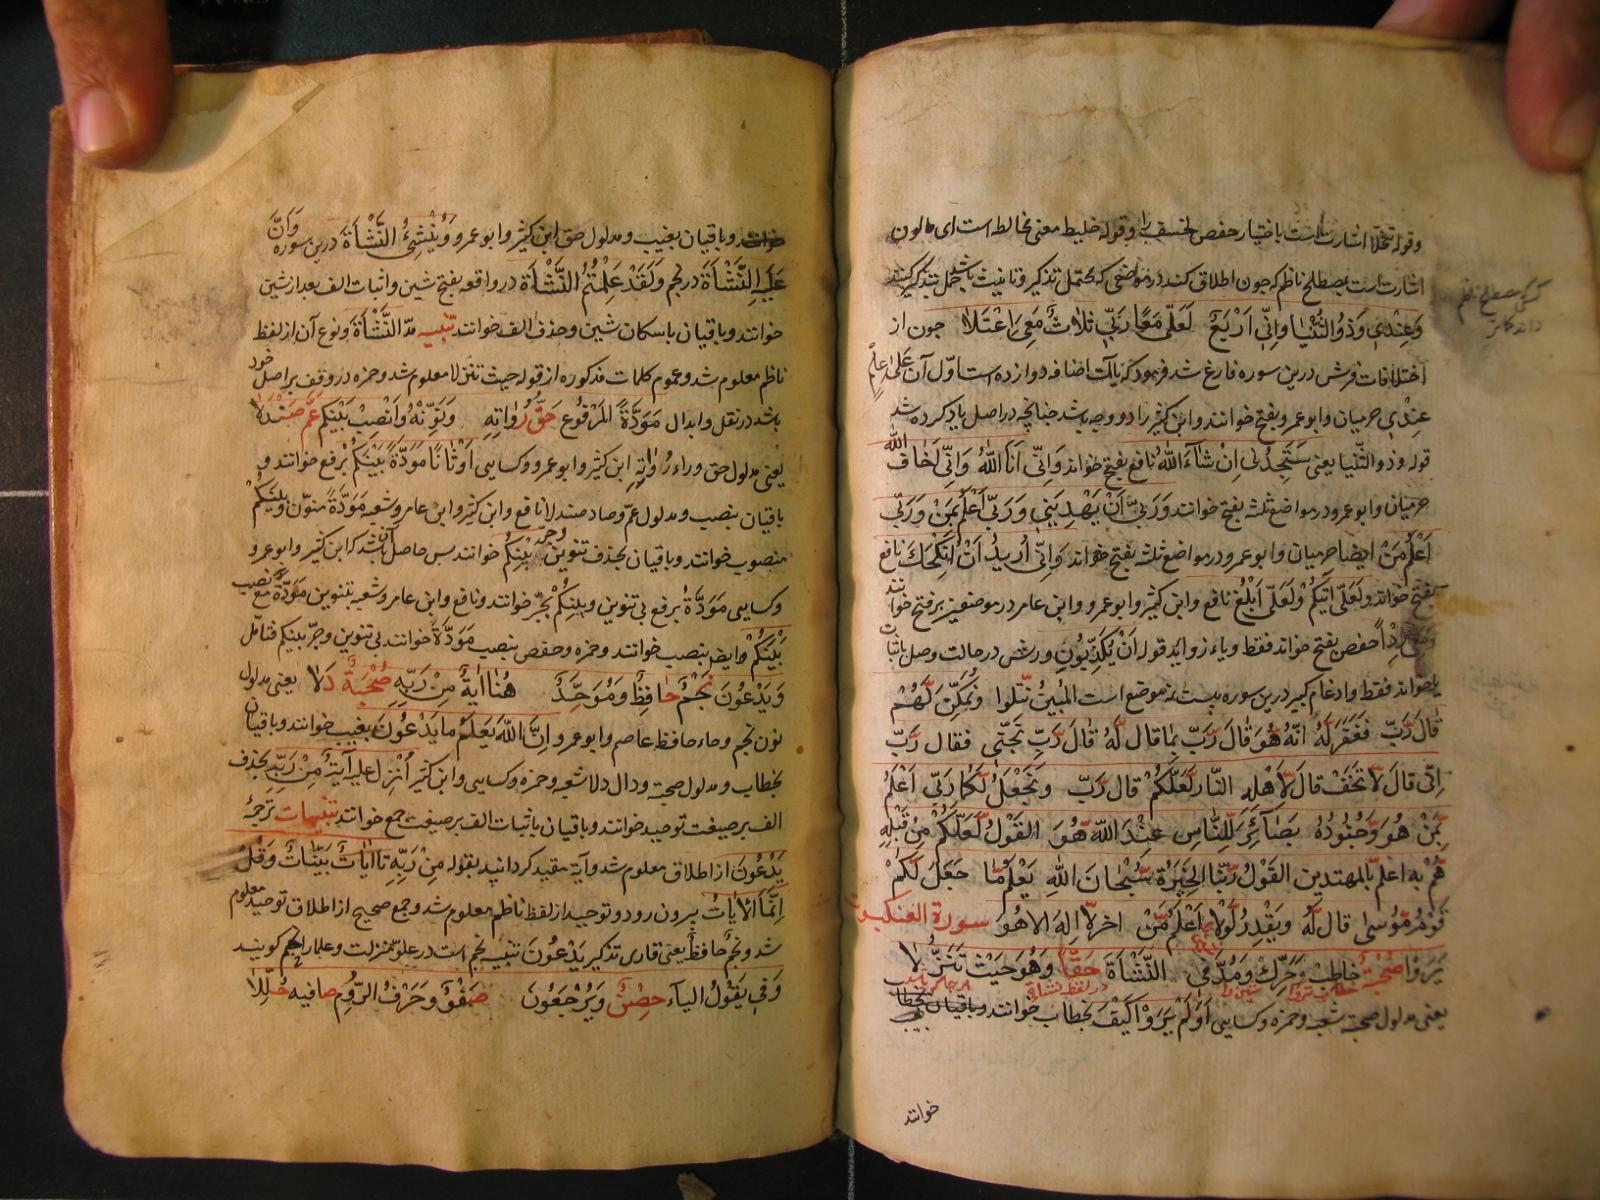 وقوله تخلا اشارت است باختيار حفص لخسف را وقوله خليط معنى مخالطه است اى مالون
اشارت است بمصطلح ناظم كه جون اطلاق كند در مواضعى كه محتمل تذكير و تانيث باشد حمل بتذكير كنند
وَعِنْدِي وَذُو الثُّنْيَا وَاِنِّي اَرْبَعٌ لَعَلِّي مَعًا رَبِّي ثَلَاثٌ مَعِي اعْتَلَا جون از
اختلافات فرش درين سوره فارغ شد فرمود كه ياآت اضافه دوازده است اوّل آن عَلٰى عِلْمٍ
عِنْدِي حرميان وابو عمرو بفتح خوانند وابن كثير را دو وجه باشد جنانچه در اصل ياد كرده شد
قوله وذو الثنيا يعنى سَتَجِدُنِي اِنْ شَآءَ اللّٰهُ نافع بفتح خواند وَاِنِّي اَنَا اللّٰهُ وَاِنِّي اَخَافُ
حرميان وابو عمرو در مواضع ثلثه بفتح خوانند وَرَبِّي اَنْ يَهْدِيَنِي وَرَبِّي اَعْلَمُ بِمَنْ وَرَبِّي
اَعْلَمُ مَنْ ايضا حرميان وابو عمرو در مواضع ثلثه بفتح خوانند وَاِنِّي اُرِيدُ اَنْ اُنْكِحَكَ نافع
بفتح خواند وَلَعَلِّي آتِيكُمْ وَلَعَلِّي اَطَّلِعُ نافع وابن كثير وابو عمرو وابن عامر در موضعين بفتح خوانند
رِدْءًا حفص بفتح خواند فقط وياء زوايد قوله اَنْ يُكَذِّبُونِ ورش در حالت وصل باثبات
يا خواند فقط وادغام كبير درين سوره بيست نه موضع است الْمُبِينُ نَتْلُوا وَنُمَكِّنَ لَهُمْ
قَالَ رَبِّ فَغَفَرَ لَهُ اِنَّهُ هُوَ قَالَ رَبِّ بِمَا قَالَ لَهُ قَالَ رَبِّ نَجِّنِي فَقَالَ رَبِّ
اِنِّي قَالَ لَا تَخَفْ قَالَ لِاَهْلِهِ النَّارِ لَعَلَّكُمْ قَالَ رَبِّ وَنَجْعَلُ لَكُمَا رَبِّي اَعْلَمُ
بِمَنْ هُوَ وَجُنُودُهُ بَصَآئِرَ لِلنَّاسِ عِنْدِ اللّٰهِ هُوَ الْقَوْلَ لَعَلَّهُمْ مِنْ قَبْلِهِ
هُمْ بِهِ اَعْلَمُ بِالْمُهْتَدِينَ الْقَوْلُ رَبَّنَا الْخِيَرَةُ سُبْحَانَ اللّٰهِ يَعْلَمُ مَا جَعَلَ لَكُمْ
قَوْمِ مُوسٰى قَالَ لَهُ وَيَقْدِرُ لَوْلَا اَعْلَمُ مَنْ اٰخَرَ لَا اِلٰهَ اِلَّا هُوَ سورة العنكبوت
يَرَوْا صُحْبَةٌ خَاطِبْ وَحَرِّكْ وَمُدَّ فِي النَّشْأَةِ حَقًّا وَهُوَ حَيْثُ تَنَزَّلَا
يعنى مدلول صحبه شعبه وحمزه وكسايى اَوَلَمْ يَرَوْا كَيْفَ بخطاب خوانند وباقيان
خوانند
وباقيان بغيب ومدلول حق ابن كثير وابو عمرو وَيُنْشِئُ النَّشْأَةَ درين سوره وَاَنَّ
عَلَيْهِ النَّشْأَةَ در نجم وَلَقَدْ عَلِمْتُمُ النَّشْأَةَ در واقعه بفتح شين واثبات الف بعد از شين
خوانند وباقيان باسكان شين وحذف الف خوانند تنبيه مدّ النَّشْأَةَ ونوع آن از لفظ
ناظم معلوم شد وعموم كلمات مذكوره از قوله حيث تنزّلا معلوم شد وحمزه در وقف بر اصل خود
باشد در نقل وابدال مَوَدَّةً الْمَرْفُوعُ حَقُّ رُوَاتِهِ وَنَوِّنْهُ وَانْصِبْ بَيْنَكُمْ عَمَّ صَنْدَلَا
يعنى مدلول حق وراء رُوَاتِهِ ابن كثير وابو عمرو وكسايى اَوْثَانًا مَوَدَّةُ بَيْنِكُمْ برفع خوانند و
باقيان بنصب ومدلول عمّ وصاد صندلا نافع وابن كثير وابن عامر وشعبه مَوَدَّةً منوّن وبَيْنَكُمْ
منصوب خوانند وباقيان بحذف تنوين وجرّ بَيْنِكُمْ خوانند بس حاصل آن باشد كه ابن كثير وابو عمرو
وكسايى مَوَدَّةُ برفع بى تنوين وبَيْنِكُمْ بجرّ خوانند ونافع وابن عامر وشعبه بتنوين مَوَدَّةً مع نصب
بَيْنَكُمْ وايضا بنصب خوانند وحمزه وحفص بنصب مَوَدَّةَ خوانند بى تنوين وجرّ بينكم فتامّل
وَيَدْعُونَ نَجْمٌ حَافِظٌ وَمُوَحِّدٌ هُنَا اٰيَةٌ مِنْ رَبِّهِ صُحْبَةٌ دَلَا يعنى مدلول
نون نجم وحاء حافظ عاصم وابو عمرو اِنَّ اللّٰهَ يَعْلَمُ مَا يَدْعُونَ بغيب خوانند وباقيان
بخطاب ومدلول صحبة ودال دلا شعبه وحمزه وكسايى وابن كثير اُنْزِلَ عَلَيْهِ اٰيَةٌ مِنْ رَبِّهِ بحذف
الف بر صيغت توحيد خوانند وباقيان باثبات الف بر صيغت جمع خوانند تنبيهات ترجمهٔ
يَدْعُونَ از اطلاق معلوم شد وآية مقيد كردانيد بقوله مِنْ رَبِّهِ تا اٰيَاتٌ بَيِّنَاتٌ وَقُلْ
اِنَّمَا الْاٰيَاتُ بيرون رود وتوحيد از لفظ ناظم معلوم شد وجمع صحيح از اطلاق توحيد معلوم
شد ونجم حافظ يعنى قارى تذكير يَدْعُونَ تنبيه نجم است در علوّ منزلت وعلما را نجم كويند
وَفِي يَقُولُ الْيَآءُ حِصْنٌ وَيُرْجَعُونَ صَفْوٌ وَحَرْفُ الرُّومِ صَافِيهِ حُلِّلَا